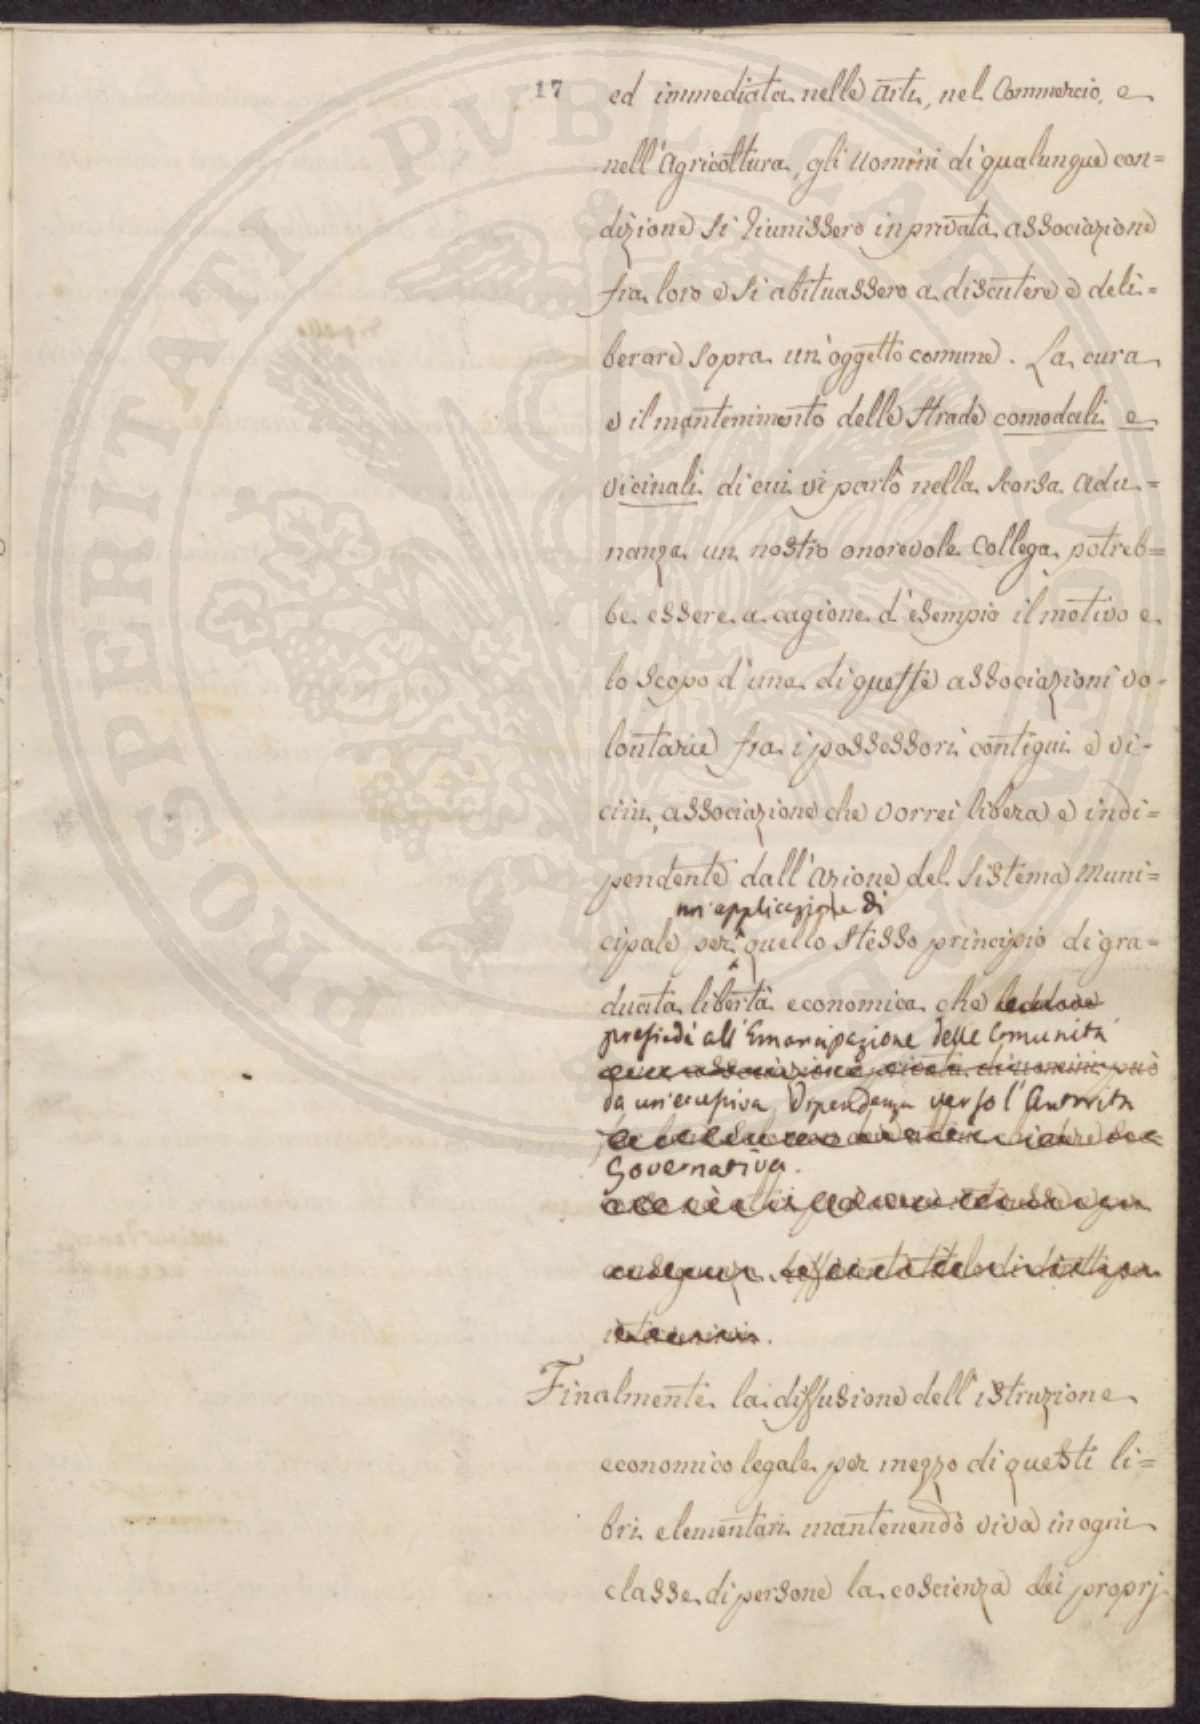 17
ed immediata nelle Arti, nel Commercio, e
nell'Agricoltura, gli Uomini di qualunque con=
dizione si riunissero in privata associazione
fra loro e si abituassero a discutere e deli=
berare sopra un'oggetto comune. La cura
e il mantenimento delle Strade comodali e
vicinali di cui vi parlò nella scorsa Adu=
nanza un nostro onorevole Collega potreb=
be essere a cagione d'esempio il motivo e
lo scopo d'una di queste associazioni vo-
lontarie fra i possessori contigui e vi-
cini, associazione che vorrei libera e indi=
pendente dall'Azione del Sistema Muni=
un'applicazione di
cipale per quello stesso principio di gra=
duata libertà economica che
presiede all'Emancipazione delle Comunità
da un'eccessiva Dipendenza verso l'Autorità
Governativa.
Finalmente la diffusione dell'istruzione
economico legale per mezzo di questi li=
bri elementari mantenendo viva in ogni
classe di persone la coscienza dei proprj
PROSPERITATI PUBLICAE